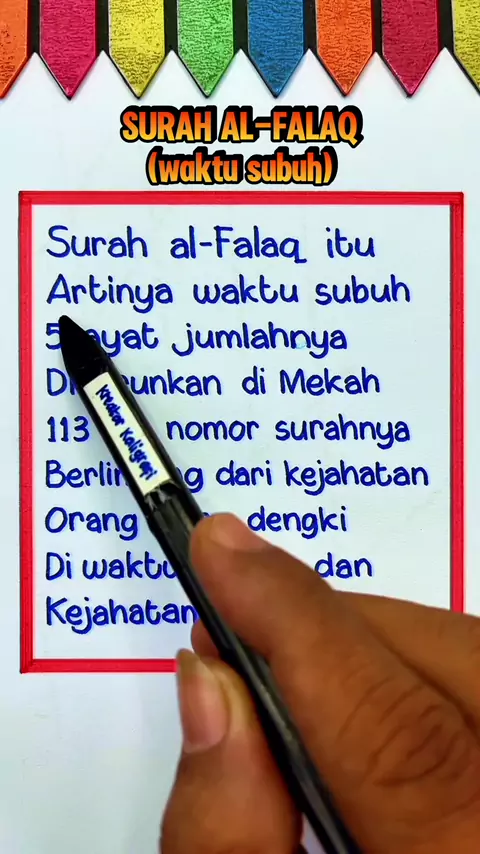 SURAH AL-FALAQ
(waktu subuh)
Surah al-Falaq itu
Artinya waktu subuh
5 ayat jumlahnya
di Mekah
113 nomor surahnya
dari kejahatan
Orang dengki
Di waktu dan
Kejahatan
Kreator Kaligrafi